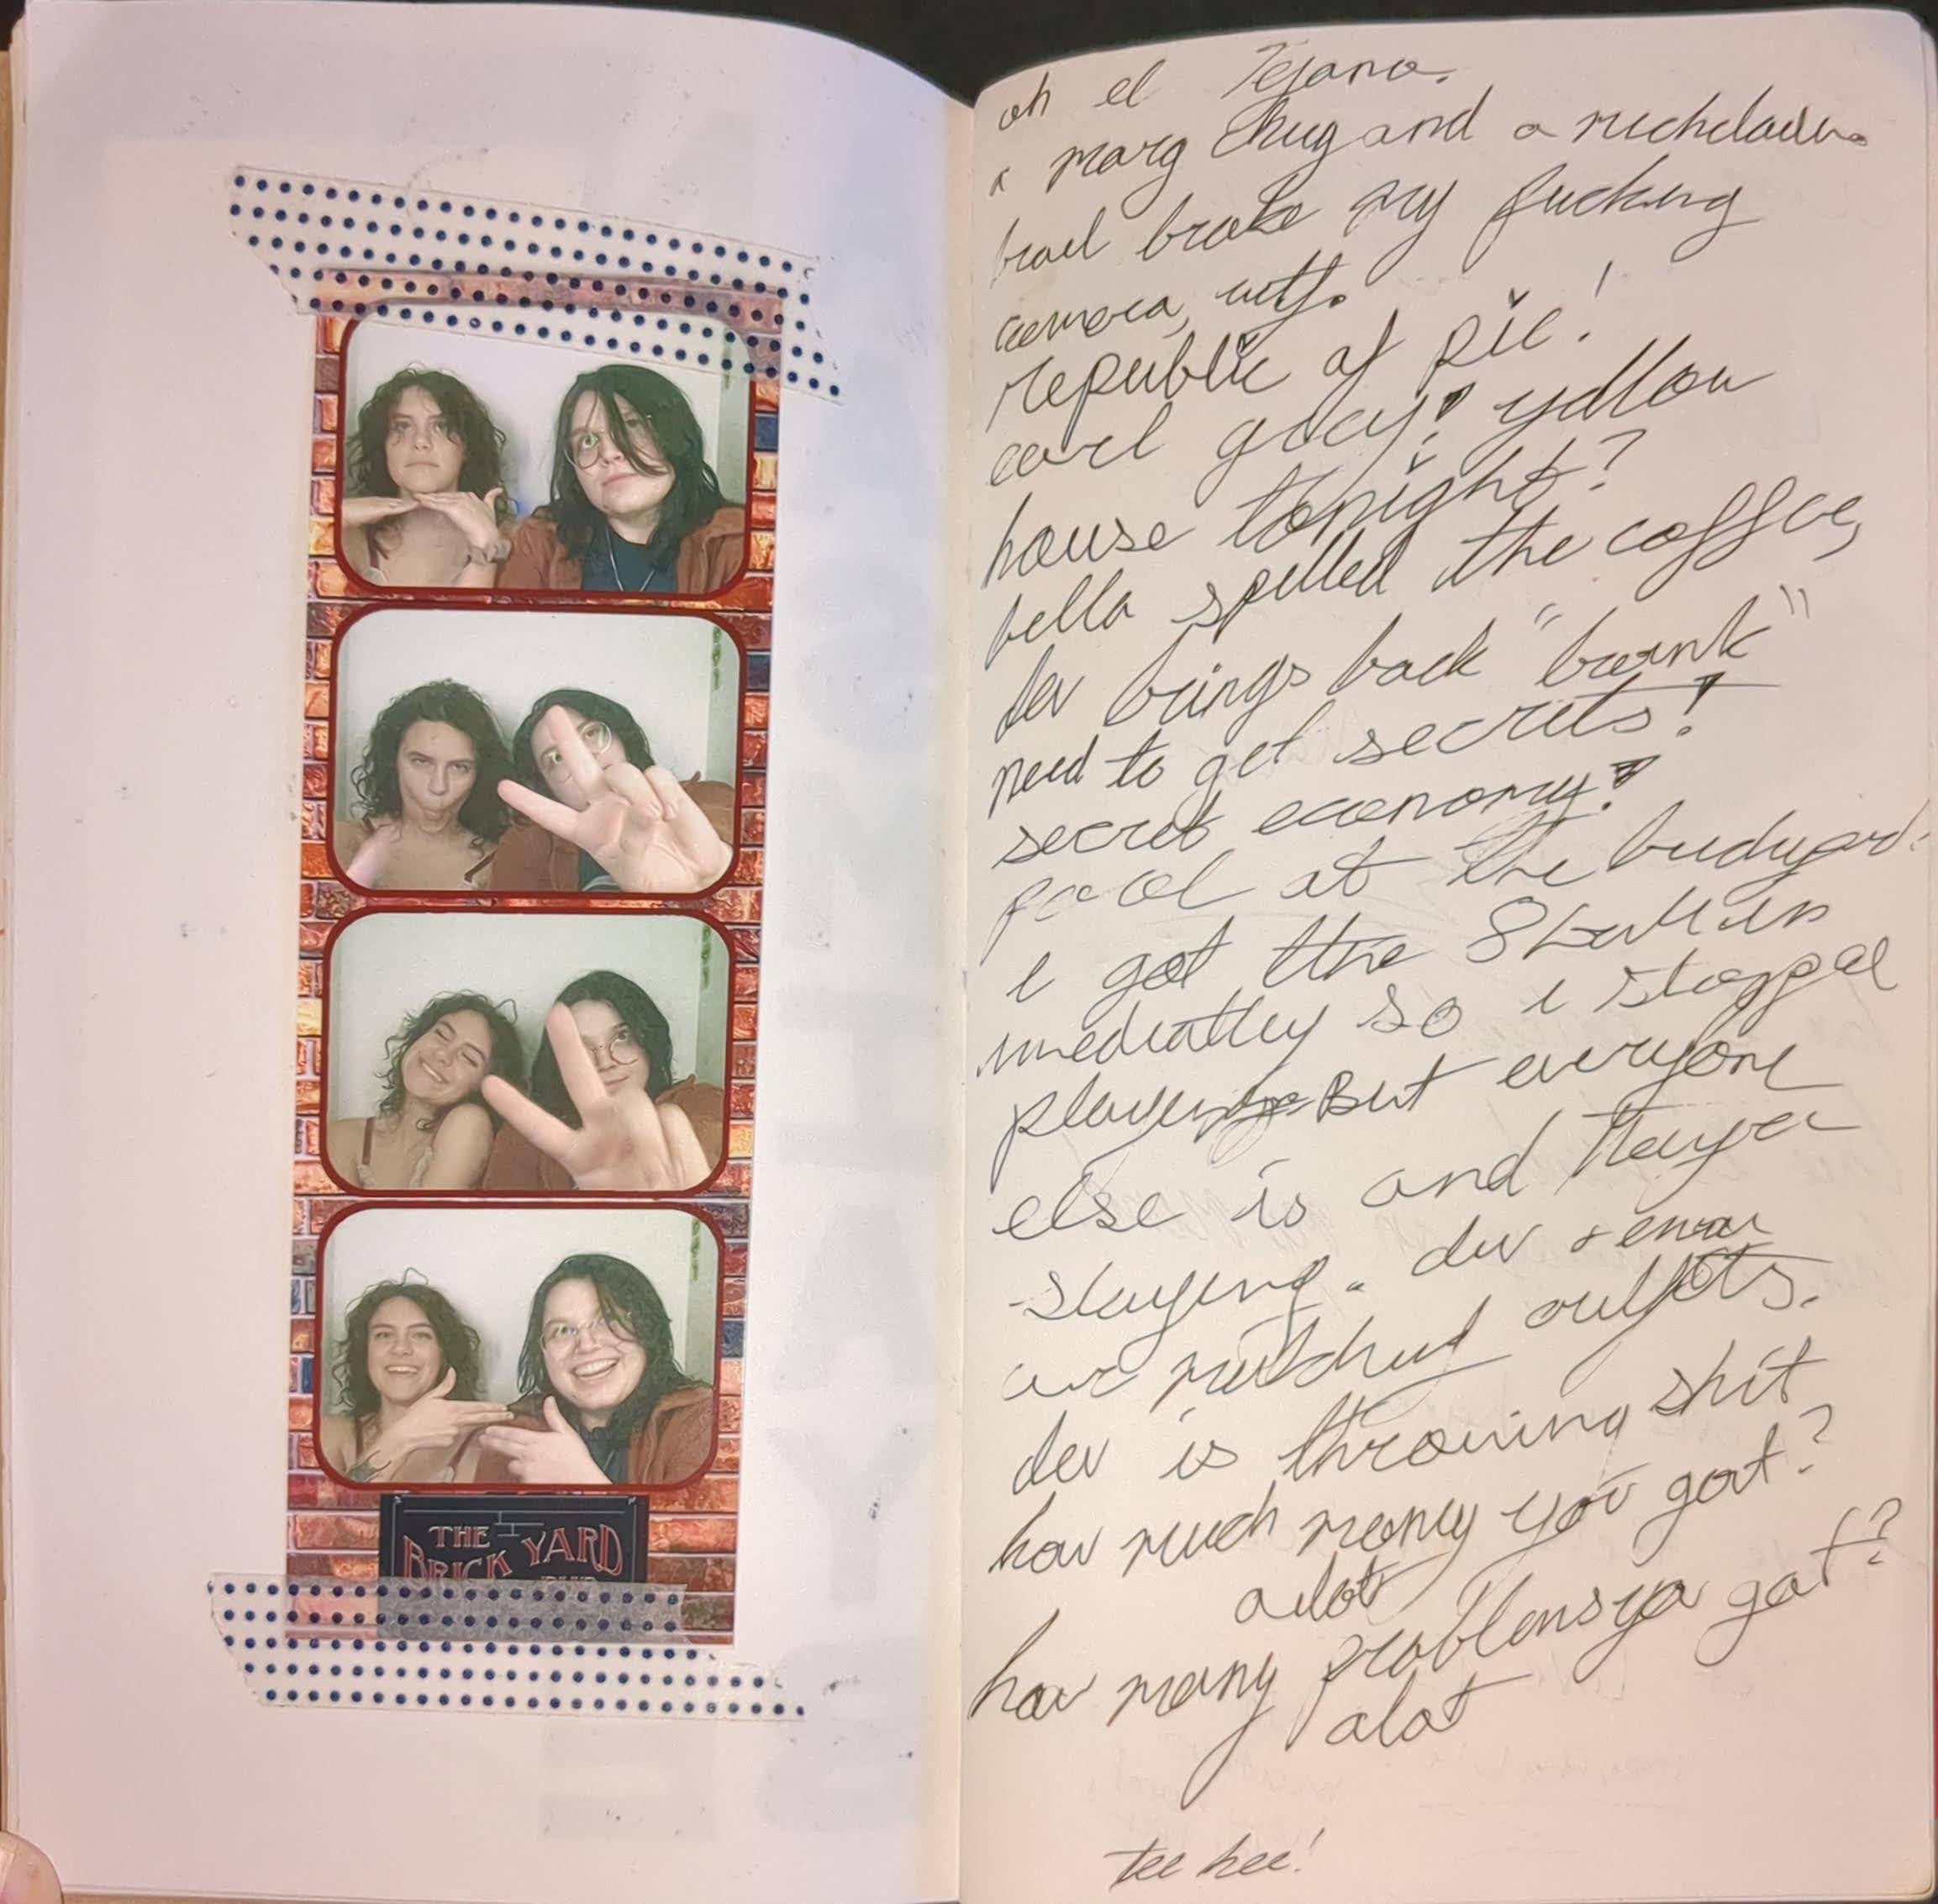 THE
BRICK YARD
oh el Tejano.
a marg chug and a michelada.
brad broke my fucking
camera, wtf.
republic of pie!
earl grey! yellow
house tonight?
bella spilled the coffee,
dev brings back "
need to get secrets!
secret economy!
pool at the
i got the 8 ball in
immediatley so i stopped
playing. But everyone
else is and theyre
slaying. dev +
are matching outfits.
dev is throwing shit
how much money you got?
alot
how many problems ya got?
alot
tee hee!